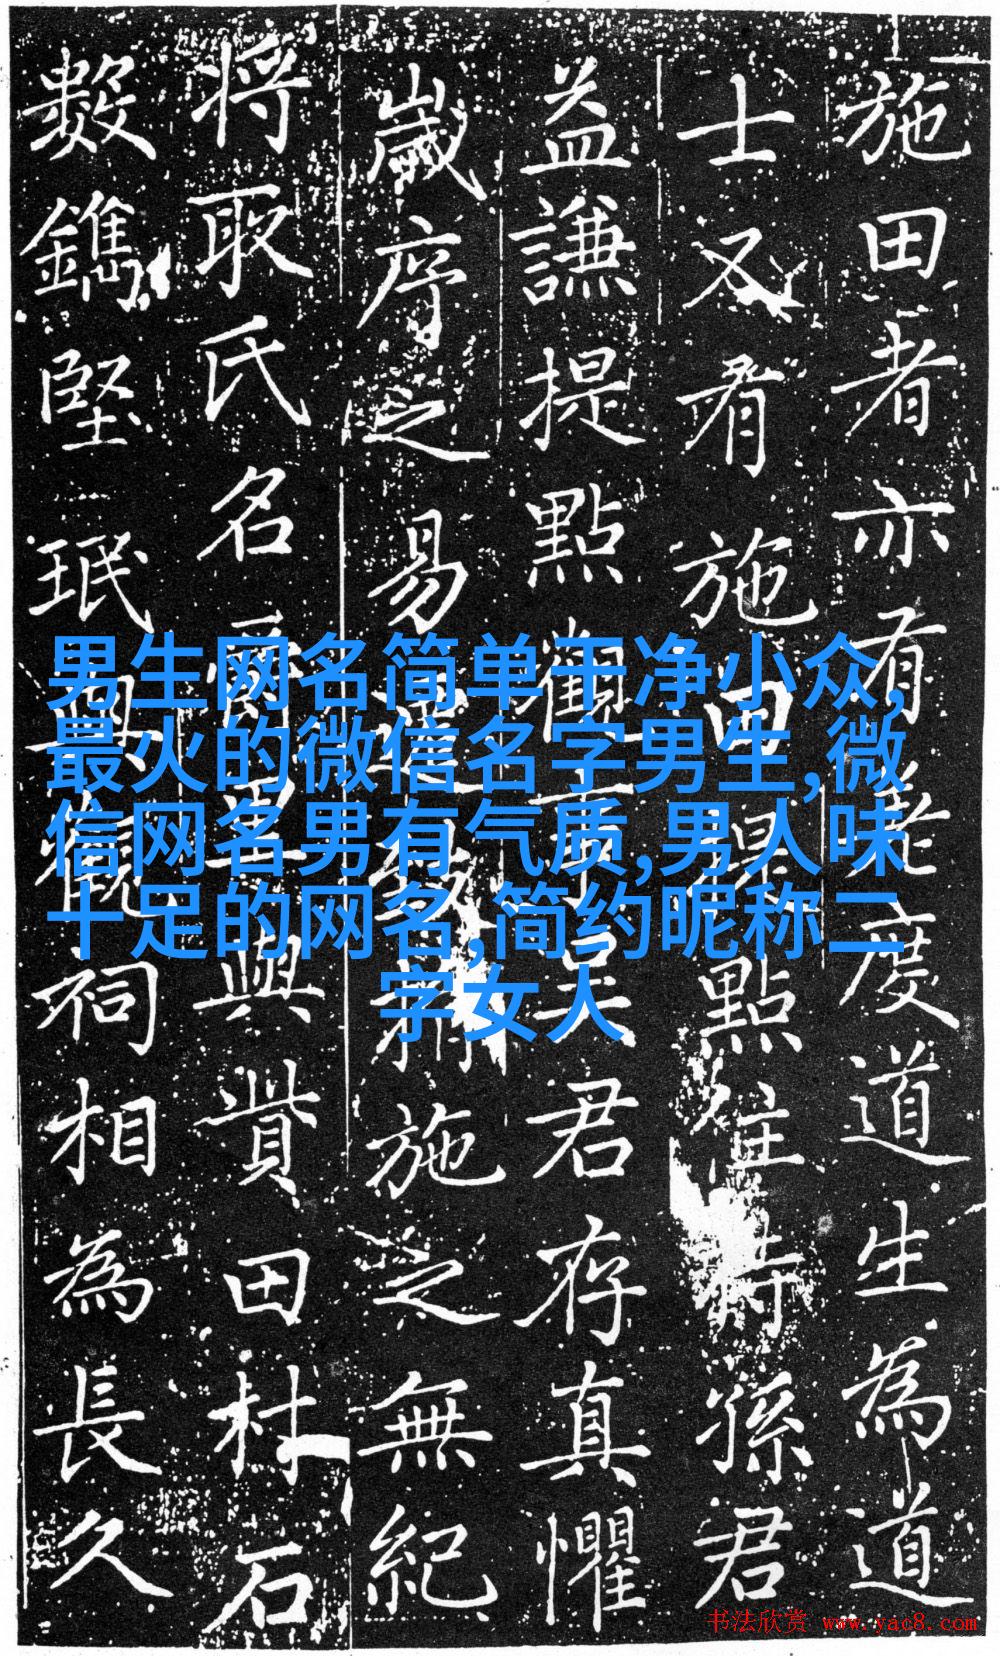 施田者亦有老度道生為道
士又有施田提點住持孫君
益謙提點觀事吳君存真懼
歲序之易遷施之無紀
將取氏名爵里與貲田杜石
數鐫堅珉與觀祠相為長久
男生网名简单干净小众,
最火的微信名字男生,微
信网名男有气质,男人味
十足的网名,简约昵称二
字女人
书法欣赏 www.yac8.com